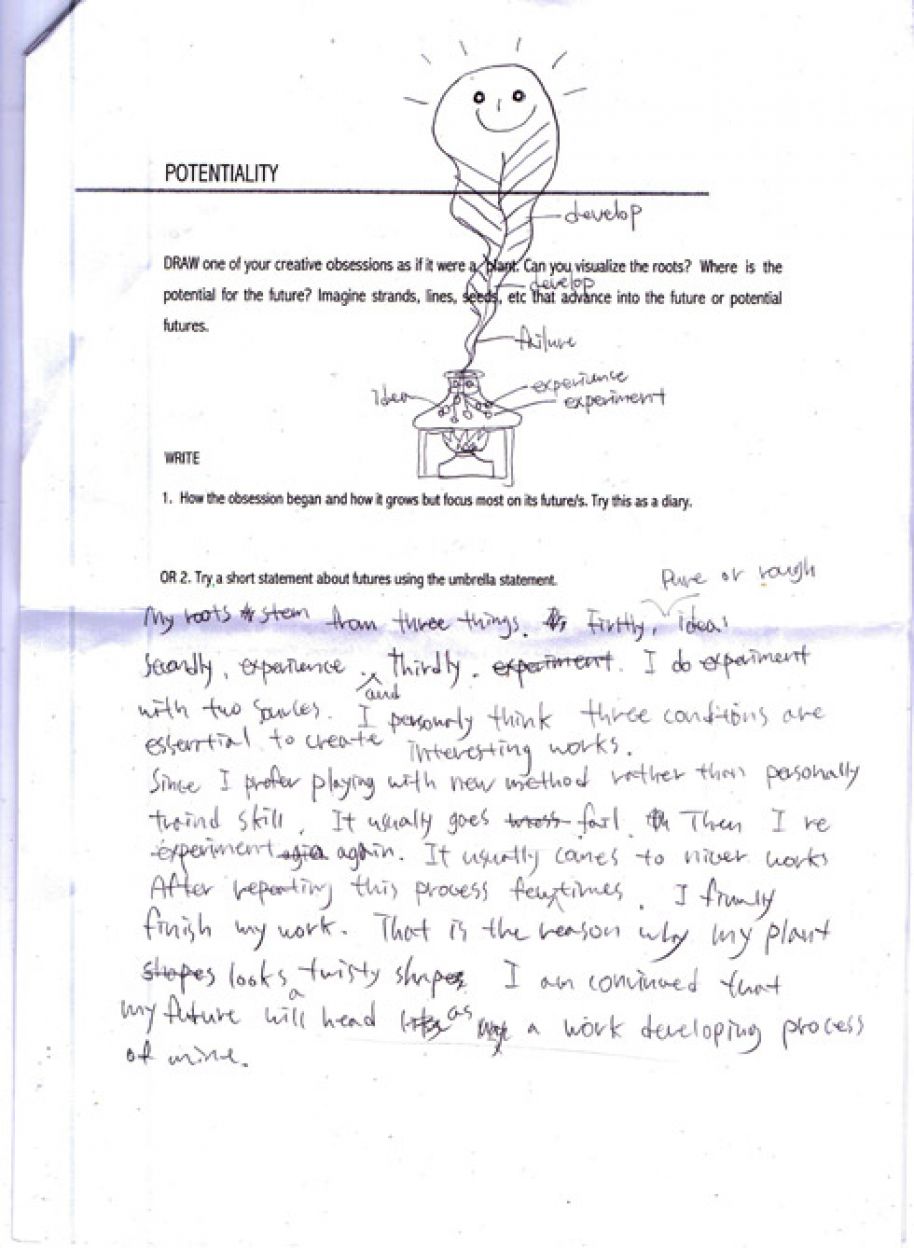 POTENTIALITY
develop
DRAW one of your creative obsessions as if it were a plant. Can you visualize the roots? Where is the
develop
potential for the future? Imagine strands, lines, seeds, etc that advance into the future or potential
futures.
failure
experiunce
Idea
experiment
WRITE
1. How the obsession began and how it grows but focus most on its future/s. Try this as a diary.
OR 2. Try a short statement about futures using the umbrella statement.
Pure or rough
My roots stem from three things. Firstly, idea.
Secondly, experience. and thirdly. experiment. I do experiment
with two sources. I personly think three conditions are
essential to create interesting works.
Since I prefer playing with new method rather than personally
traind skill, It usually goes fail. Then I re
experiment again. It usually comes to works
After repeating this process few times. I
finish my work. That is the reason why my plant
looks a twisty shape. I am convinced that
my future will head as a work developing process
of mine.